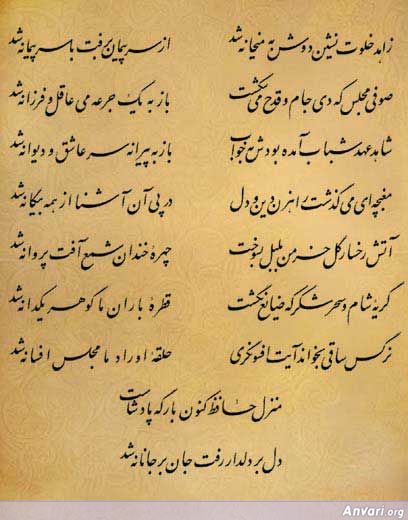 زاهد خلوت نشین دوش به میخانه شد از سر پیمان برفت با سر پیمانه شد
صوفی مجلس که دی جام و قدح می شکست باز به یک جرعه می عاقل و فرزانه شد
شاهد عهد شباب آمده بودش بخواب باز به پیرانه سر عاشق و دیوانه شد
مغبچه ای می گذشت راهزن دین و دل در پی آن آشنا از همه بیگانه شد
آتش رخسار گل خرمن بلبل بسوخت چهرهٔ خندان شمع آفت پروانه شد
گریهٔ شام و سحر شکر که ضایع نگشت قطرهٔ باران ما گوهر یکدانه شد
نرگس ساقی بخواند آیت افسونگری حلقهٔ اوراد ما مجلس افسانه شد
منزل حافظ کنون بارگه پادشاست
دل بر دلدار رفت جان بر جانانه شد
Anvari.org